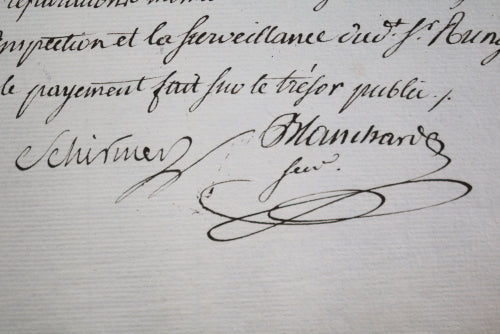 réparations
inspection et la surveillance dud.t S.r Rung
le payement fait sur le trésor public./.
Schirmer Blanchard
Secr.